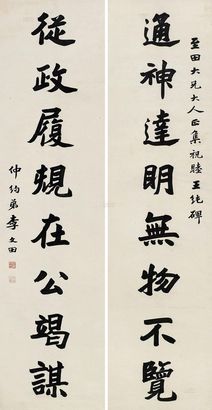 至田大兄大人正集祝睦王純碑
通神達明無物不覽
從政履䂓在公竭謀
仲約弟李文田